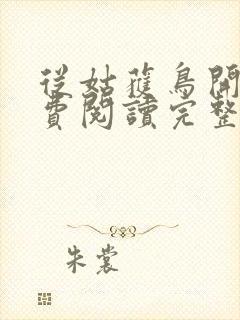 從姑獲鳥開
費閱讀完整
朱裳